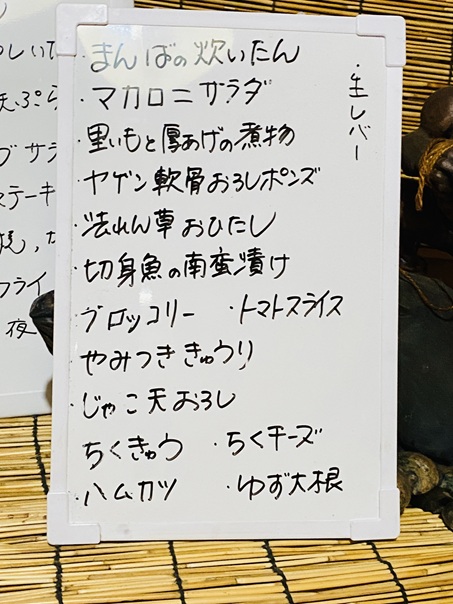 ・まんばの炊いたん
・マカロニサラダ
・里いもと厚あげの煮物
・ヤゲン軟骨おろしポンズ
・法れん草おひたし
・切身魚の南蛮漬け
・ブロッコリー ・トマトスライス
・やみつききゅうり
・じゃこ天おろし
・ちくきゅう ・ちくチーズ
・ハムカツ ・ゆず大根
・生レバー
天ぷら
ブサラ
ステーキ
フライ
夜